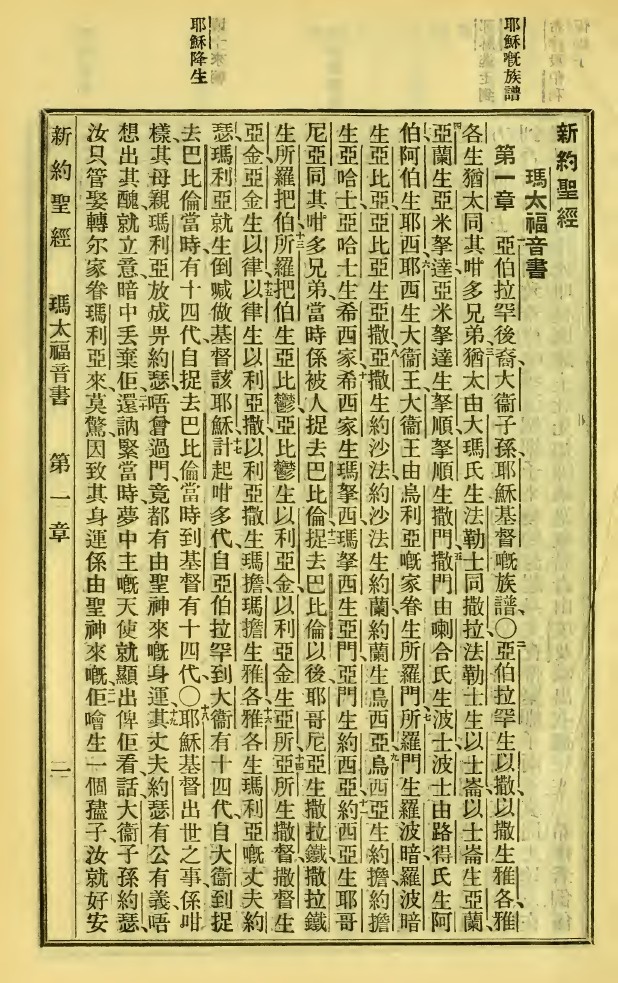 耶穌嘅族譜
耶穌降生
新約聖經
瑪太福音書
第一章 一亞伯拉罕後裔大衞子孫耶穌基督嘅族譜、〇二亞伯拉罕生以撒、以撒生雅各、雅
各生猶太同其咁多兄弟、三猶太由大瑪氏生法勒士同撒拉、法勒士生以士崙、以士崙生亞蘭、
四亞蘭生亞米拏達、亞米拏達生拏順、拏順生撒門、五撒門由喇合氏生波士、波士由路得氏生阿
伯、阿伯生耶西、六耶西生大衞王、大衞王由烏利亞嘅家眷生所羅門、七所羅門生羅波暗、羅波暗
生亞比亞、亞比亞生亞撒、八亞撒生約沙法、約沙法生約蘭、約蘭生烏西亞、九烏西亞生約擔、約擔
生亞哈士、亞哈士生希西家、十希西家生瑪拏西、瑪拏西生亞門、亞門生約西亞、十一約西亞生耶哥
尼亞同其咁多兄弟、當時係被人捉去巴比倫、十二捉去巴比倫以後、耶哥尼亞生撒拉鐵、撒拉鐵
生所羅把伯、十三所羅把伯生亞比鬱、亞比鬱生以利亞金、以利亞金生亞所、十四亞所生撒督、撒督生
亞金、亞金生以律、十五以律生以利亞撒、以利亞撒生瑪擔、瑪擔生雅各、十六雅各生瑪利亞嘅丈夫約
瑟、瑪利亞就生倒喊做基督該耶穌、十七計起咁多代、自亞伯拉罕到大衞有十四代、自大衞到捉
去巴比倫當時、有十四代、自捉去巴比倫當時到基督有十四代、〇十八耶穌基督出世之事係咁
樣、其母親瑪利亞放成畀約瑟、唔曾過門、竟都有由聖神來嘅身運、十九其丈夫約瑟有公有義、唔
想出其醜、就立意暗中丟棄佢、二十還訥緊當時、夢中主嘅天使就顯出俾佢看、話、大衞子孫約瑟、
汝只管娶轉尔家眷瑪利亞來、莫驚、因致其身運係由聖神來嘅、二一佢噲生一個孻子、汝就好安
新約聖經 瑪太福音書 第一章 二